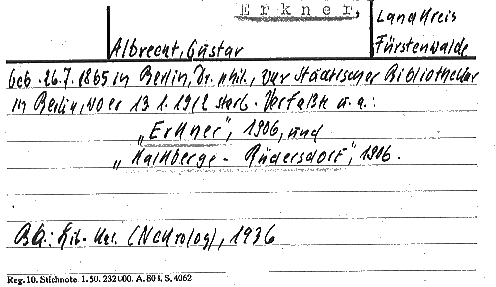 Erkner,
Landkreis
Fürstenwalde
Albrecht, Gustav
geb. 26.7.1865 in Berlin, Dr. phil., war Städtischer Bibliothekar
in Berlin, wo er 13.1.1912 starb. Verfaßte u.a.:
„Erkner", 1906, und
„Kalkberge - Rüdersdorf", 1906.
(Nekrolog), 1936
Reg. 10. Stichnote. 1. 50. 232 000. A. 801. S. 4062